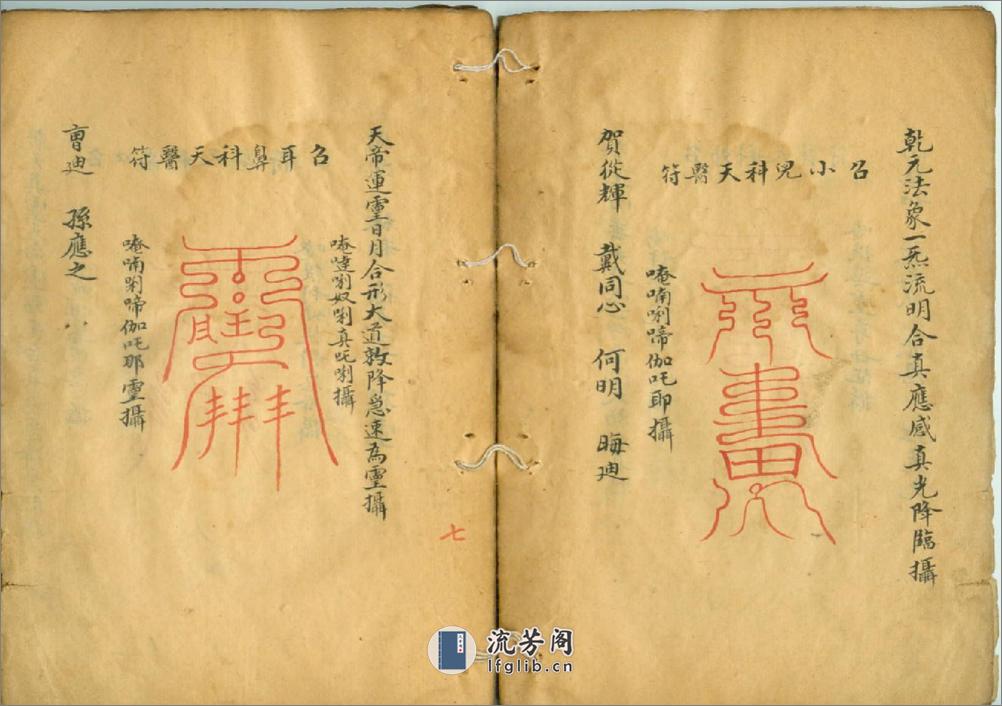 乾元法象一炁流明合真應感真光降臨攝
召小兒科天醫符
唵喃唎啼伽吒即攝
賀從輝　戴同心　何明　晦迪
天帝運靈日月合形大道敕降急速為靈攝
召耳鼻科天醫符
唵噠唎奴唎真吒唎攝
唵喃唎啼伽吒那靈攝
曺迪　孫應之
七
流芳阁
lfglib.cn